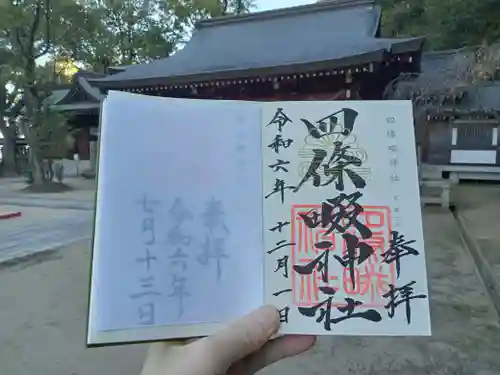 四條畷神社
奉拝
四條畷神社
令和六年
十二月一日
奉拝
令和六年
七月十三日